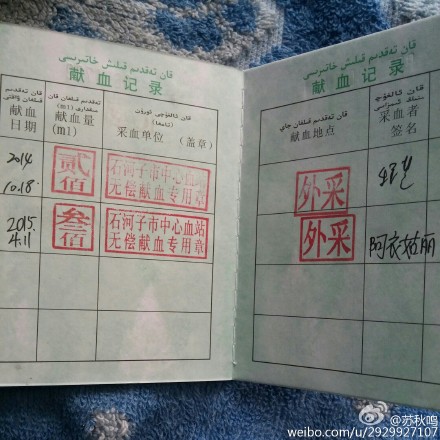 قان تەقدىم قىلىش خاتىرىسى
献血记录
献血
日期
献血量
(ml)
采血单位 (盖章)
2014
10.18.
贰佰
石河子市中心血站
无偿献血专用章
2015.
4.11
叁佰
石河子市中心血站
无偿献血专用章
قان تەقدىم قىلىش خاتىرىسى
献血记录
قان تەقدىم قىلغان جاي
献血地点
采血者
签名
外采
外采
阿衣姑丽
@苏秋鸣
weibo.com/u/2929927107